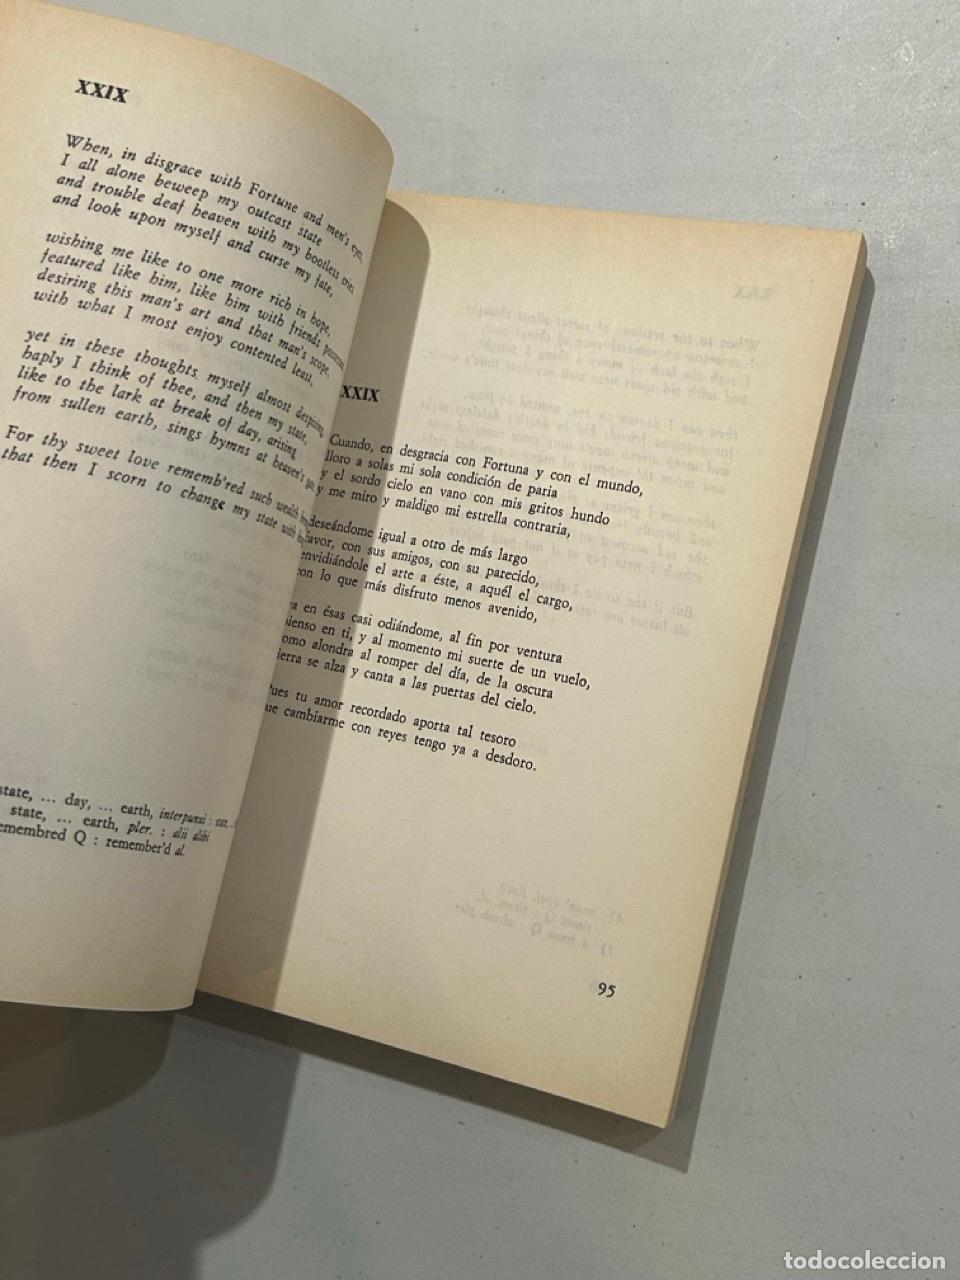 XXIX
When, in disgrace with Fortune and men's eyes,
I all alone beweep my outcast state
and trouble deaf heaven with my bootless cries
and look upon myself and curse my fate,
wishing me like to one more rich in hope,
featured like him, like him with friends possessed,
desiring this man's art and that man's scope,
with what I most enjoy contented least,
yet in these thoughts myself almost despising
haply I think of thee, and then my state,
like to the lark at break of day, arising
from sullen earth, sings hymns at heaven's
For thy sweet love rememb'red such wealth
that then I scorn to change my state with
state, ... day, ... earth, interpunxi : stat, ..
state, ... earth, pler. : alii alibi
emembred Q : remember'd al.
XXIX
Cuando, en desgracia con Fortuna y con el mundo,
lloro a solas mi sola condición de paria
y el sordo cielo en vano con mis gritos hundo
y me miro y maldigo mi estrella contraria,
deseándome igual a otro de más largo
favor, con sus amigos, con su parecido,
envidiándole el arte a éste, a aquél el cargo,
con lo que más disfruto menos avenido,
ya en ésas casi odiándome, al fin por ventura
pienso en ti, y al momento mi suerte de un vuelo,
como alondra al romper del día, de la oscura
tierra se alza y canta a las puertas del cielo.
Pues tu amor recordado aporta tal tesoro
que cambiarme con reyes tengo ya a desdoro.
95
todocoleccion